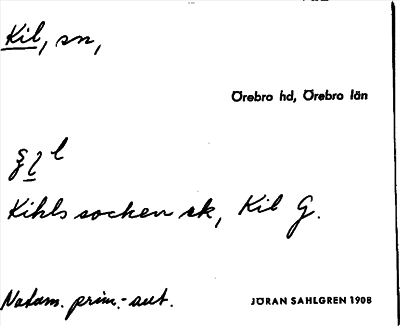 Kil, sn,
Örebro hd, Örebro län
l
Kihls socken sk, Kil G.
Natam. prim.-aut.
JÖRAN SAHLGREN 1908